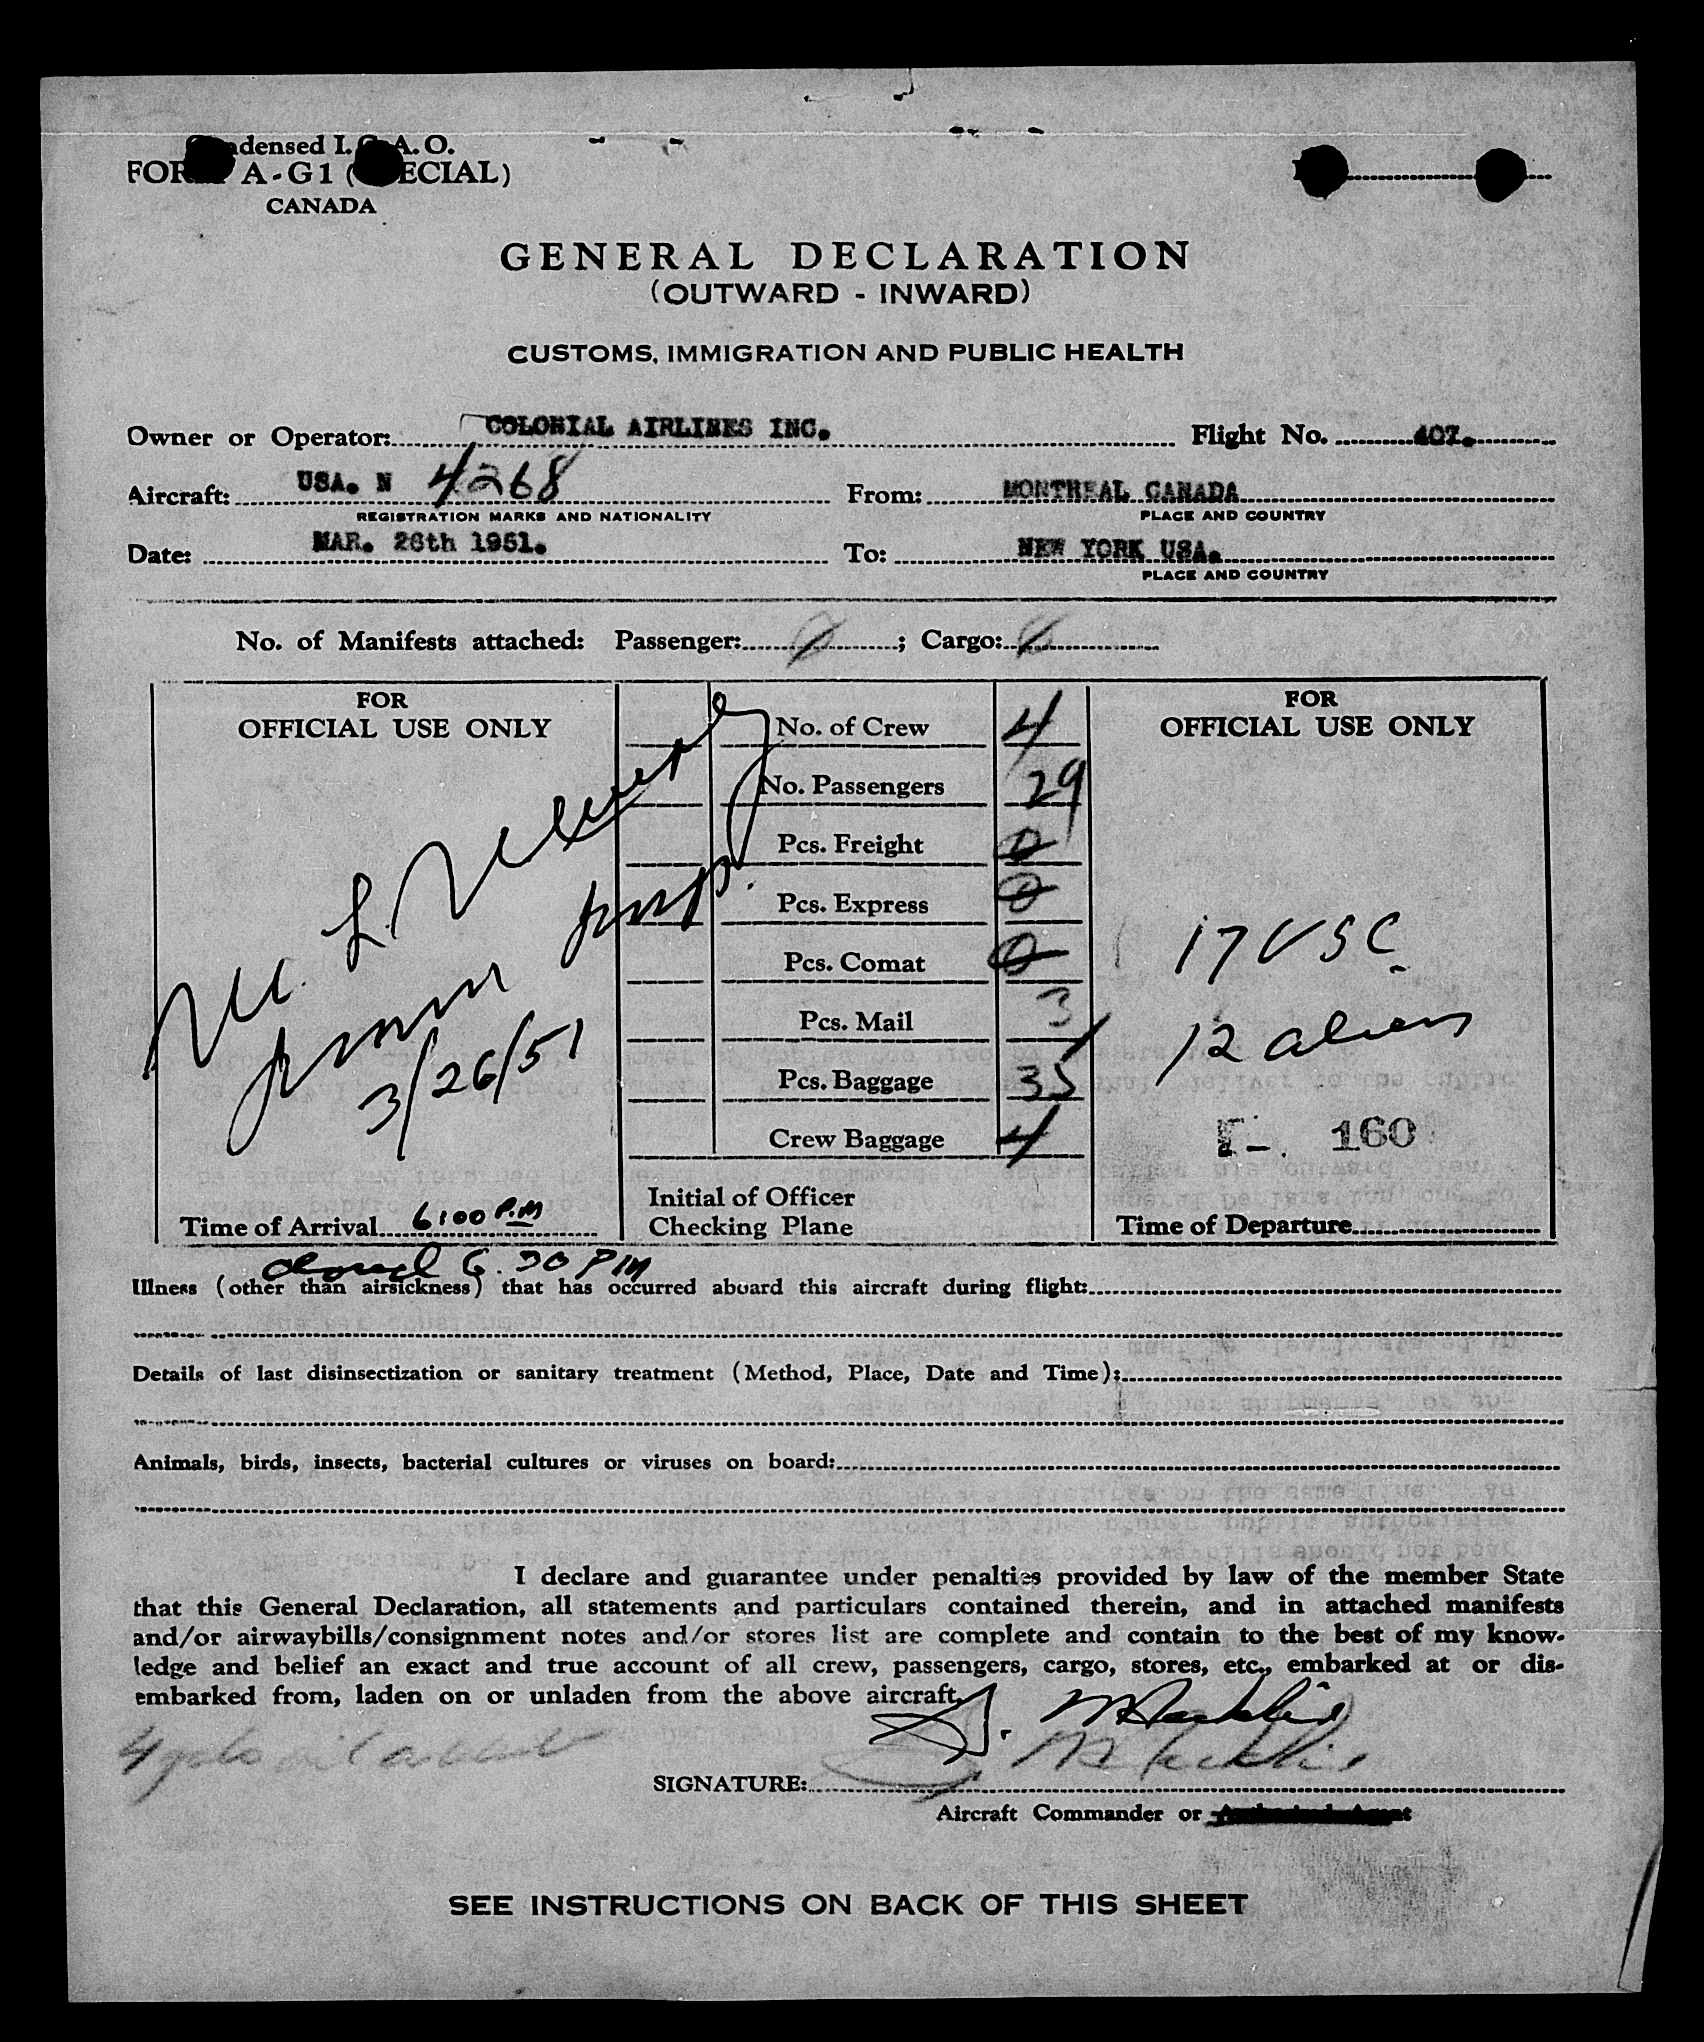 Condensed I.C.A.O.
FORM A-G1 (SPECIAL)
CANADA
GENERAL DECLARATION
(OUTWARD - INWARD)
CUSTOMS, IMMIGRATION AND PUBLIC HEALTH
Owner or Operator: COLONIAL AIRLINES INC. Flight No. 407.
Aircraft: USA. N 4268 From: MONTREAL CANADA
REGISTRATION MARKS AND NATIONALITY PLACE AND COUNTRY
Date: MAR. 26th 1951. To: NEW YORK USA.
PLACE AND COUNTRY
No. of Manifests attached: Passenger: ; Cargo:
FOR
OFFICIAL USE ONLY
3/26/51
Time of Arrival 6:00 P.M
closed 6.30 PM
No. of Crew 4
No. Passengers 29
Pcs. Freight 0
Pcs. Express 0
Pcs. Comat 0
Pcs. Mail 3
Pcs. Baggage 35
Crew Baggage 4
Initial of Officer
Checking Plane
FOR
OFFICIAL USE ONLY
17 USC
12 aliens
160
Time of Departure
Illness (other than airsickness) that has occurred aboard this aircraft during flight:
Details of last disinsectization or sanitary treatment (Method, Place, Date and Time):
Animals, birds, insects, bacterial cultures or viruses on board:
I declare and guarantee under penalties provided by law of the member State
that this General Declaration, all statements and particulars contained therein, and in attached manifests
and/or airwaybills/consignment notes and/or stores list are complete and contain to the best of my know-
ledge and belief an exact and true account of all crew, passengers, cargo, stores, etc., embarked at or dis-
embarked from, laden on or unladen from the above aircraft.
SIGNATURE:
Aircraft Commander or
SEE INSTRUCTIONS ON BACK OF THIS SHEET